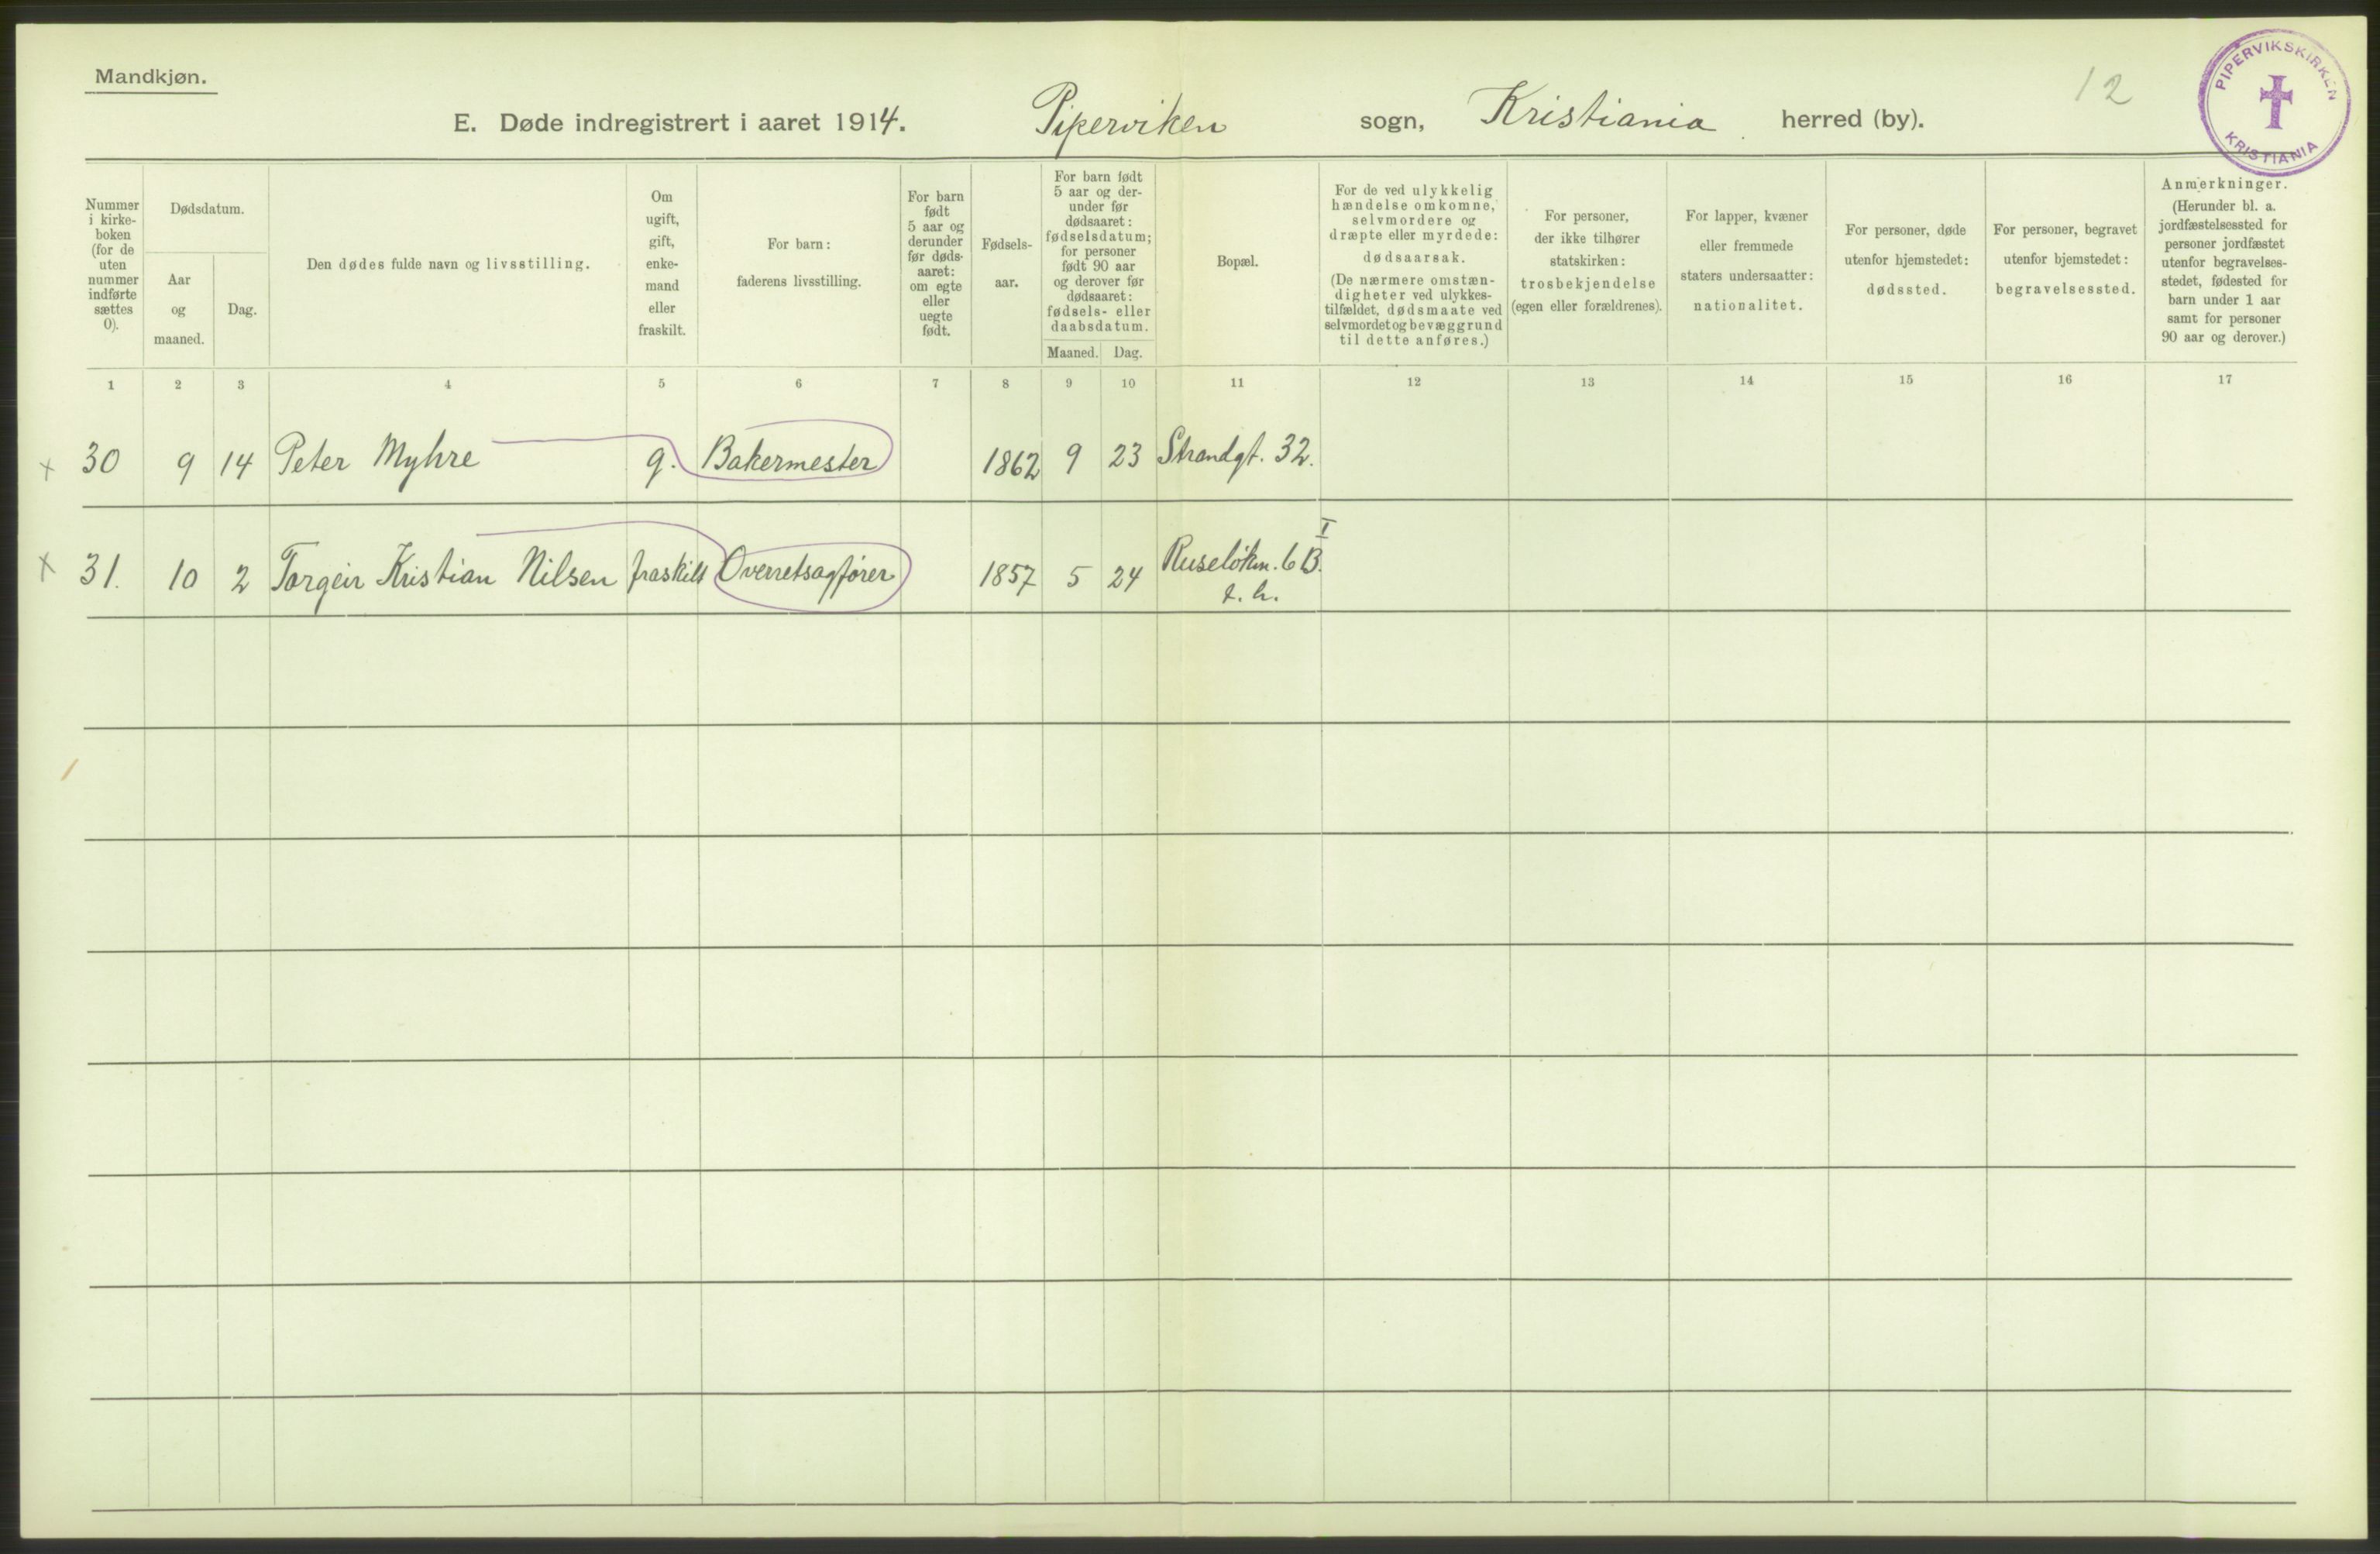 Mandkjøn.
12
PIPERVIKSKIRKEN
KRISTIANIA
E. Døde indregistrert i aaret 1914. Piperviken sogn, Kristiania herred (by).
Nummer
i kirke-
boken
(for de
uten
nummer
indførte
sættes
0).
Dødsdatum.
Aar
og
maaned.
Dag.
Den dødes fulde navn og livsstilling.
Om
ugift,
gift,
enke-
mand
eller
fraskilt.
For barn:
faderens livsstilling.
For barn
født
5 aar og
derunder
før døds-
aaret:
om egte
eller
uegte
født.
Fødsels-
aar.
For barn født
5 aar og der-
under før
dødsaaret:
fødselsdatum;
for personer
født 90 aar
og derover før
dødsaaret:
fødsels- eller
daabsdatum.
Maaned. Dag.
Bopæl.
For de ved ulykkelig
hændelse omkomne,
selvmordere og
dræpte eller myrdede:
dødsaarsak.
(De nærmere omstæn-
digheter ved ulykkes-
tilfældet, dødsmaate ved
selvmordet og bevæggrund
til dette anføres.)
For personer,
der ikke tilhører
statskirken:
trosbekjendelse
(egen eller forældrenes).
For lapper, kvæner
eller fremmede
staters undersaatter:
nationalitet.
For personer, døde
utenfor hjemstedet:
dødssted.
For personer, begravet
utenfor hjemstedet:
begravelsessted.
Anmerkninger.
(Herunder bl. a.
jordfæstelsessted for
personer jordfæstet
utenfor begravelses-
stedet, fødested for
barn under 1 aar
samt for personer
90 aar og derover.)
1 2 3 4 5 6 7 8 9 10 11 12 13 14 15 16 17
x 30 9 14 Peter Myhre g. Bakermester 1862 9 23 Strandgt. 32.
x 31. 10 2 Torgeir Kristian Nilsen fraskilt Overretsagfører 1857 5 24 Ruseløkv. 6 B. I
t. h.